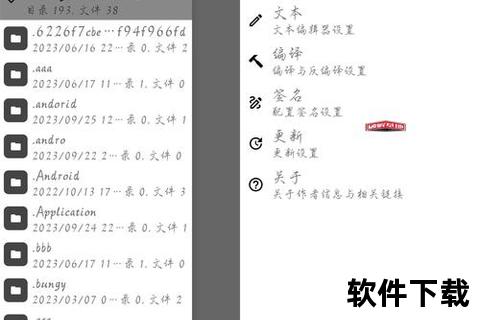 目录 193. 文件 38
.6226f7cbe…f94f966fd
2023/06/16 22…录 0. 文件 2
.aaa
2023/06/17 11…录 1. 文件 0
.andorid
2023/09/25 12…录 0. 文件 1
.andro
2023/09/22 2…录 0. 文件 2
.Android
2022/10/13 17…录 0. 文件 3
.Application
2023/09/24 22…录 0. 文件 1
.bbb
2023/06/17 11…录 1. 文件 0
.bungy
2023/03/07 0…录 0. 文件 2
文本
文本编辑器设置
编译
编译与反编译设置
签名
配置签名设置
更新
更新设置
关于
关于作者信息与相关链接
软件下载